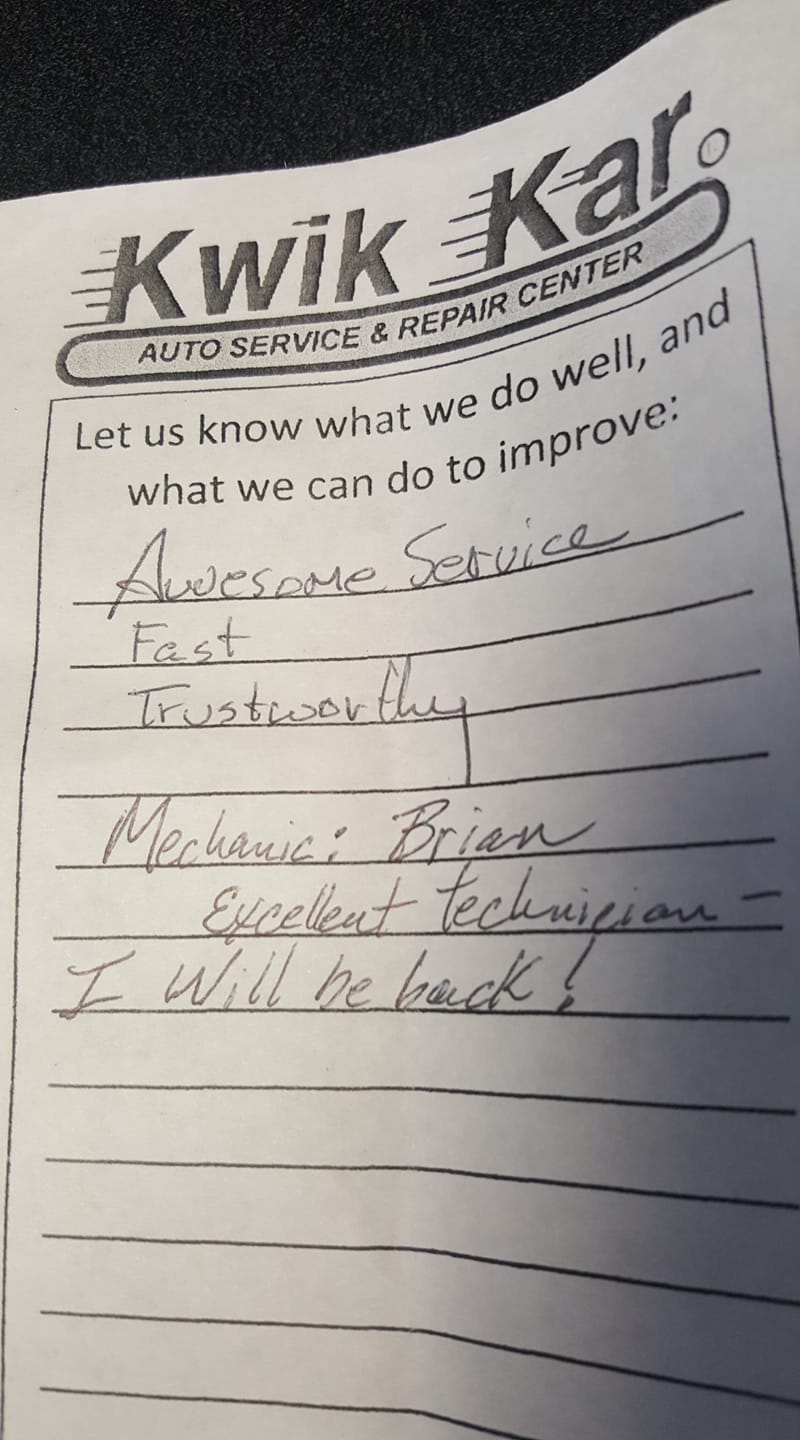 Kwik Kar
AUTO SERVICE & REPAIR CENTER
Let us know what we do well, and
what we can do to improve:
Awesome Service
Fast
Trustworthy
Mechanic: Brian
Excellent technician -
I Will be back!